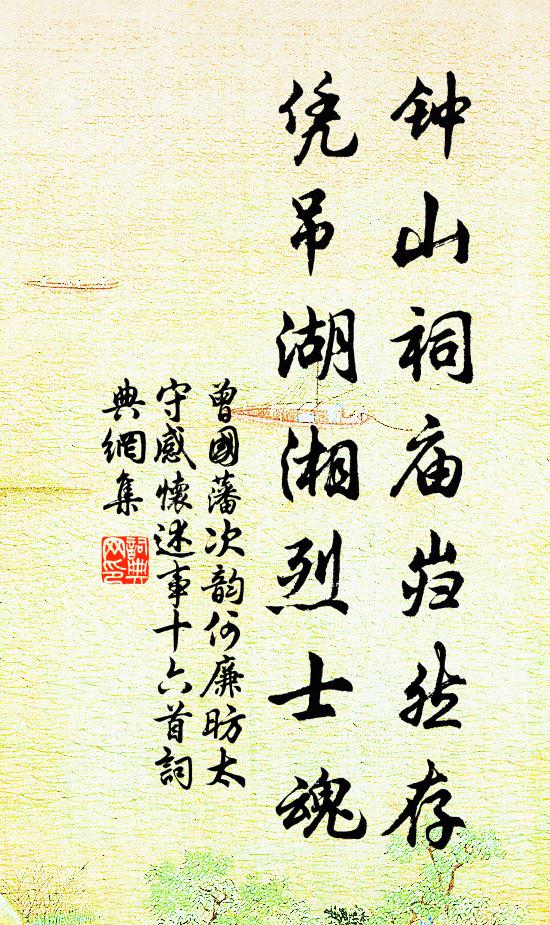 钟山祠庙岿然存
凭吊湖湘烈士魂
曾國藩次韵何廉昉太
守感懷述事十六首詞
典網集
詞典
网印